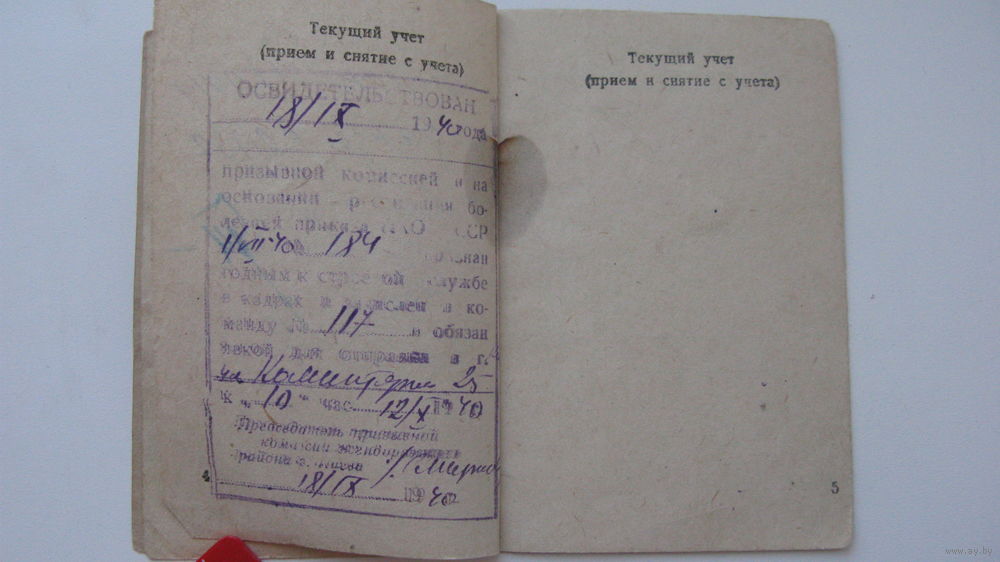 Текущий учет
(прием и снятие с учета)
ОСВИДЕТЕЛЬСТВОВАН
18/IX 1940 года
призывной комиссией и на
основании расписания бо-
лезней приказа НКО СССР
1/VII 40 184 признан
годным к строевой службе
в кадрах и зачислен в ко-
манду № 117 и обязан
явкой для отправки в г.
ул Коминтерна 25
к „ 10 " час. 12/X 1940
Председатель призывной
комиссии
района г. Киева
18/IX 1940
4
Текущий учет
(прием и снятие с учета)
5
www.ay.by